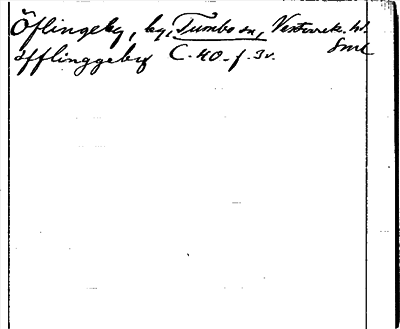 Öflingeby, by, Tumbo sn, Vesterrek. hd.
Sml
öfflinggeby C. 40. f. 3v.